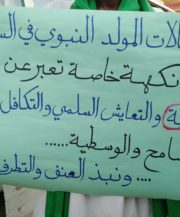 لات المولد النبوي في الس
نكهة خاصة تعبر عن
ة والتعايش السلمي والتكافل
سامح والوسطية ......
.... ونبذ العنف والتطرف